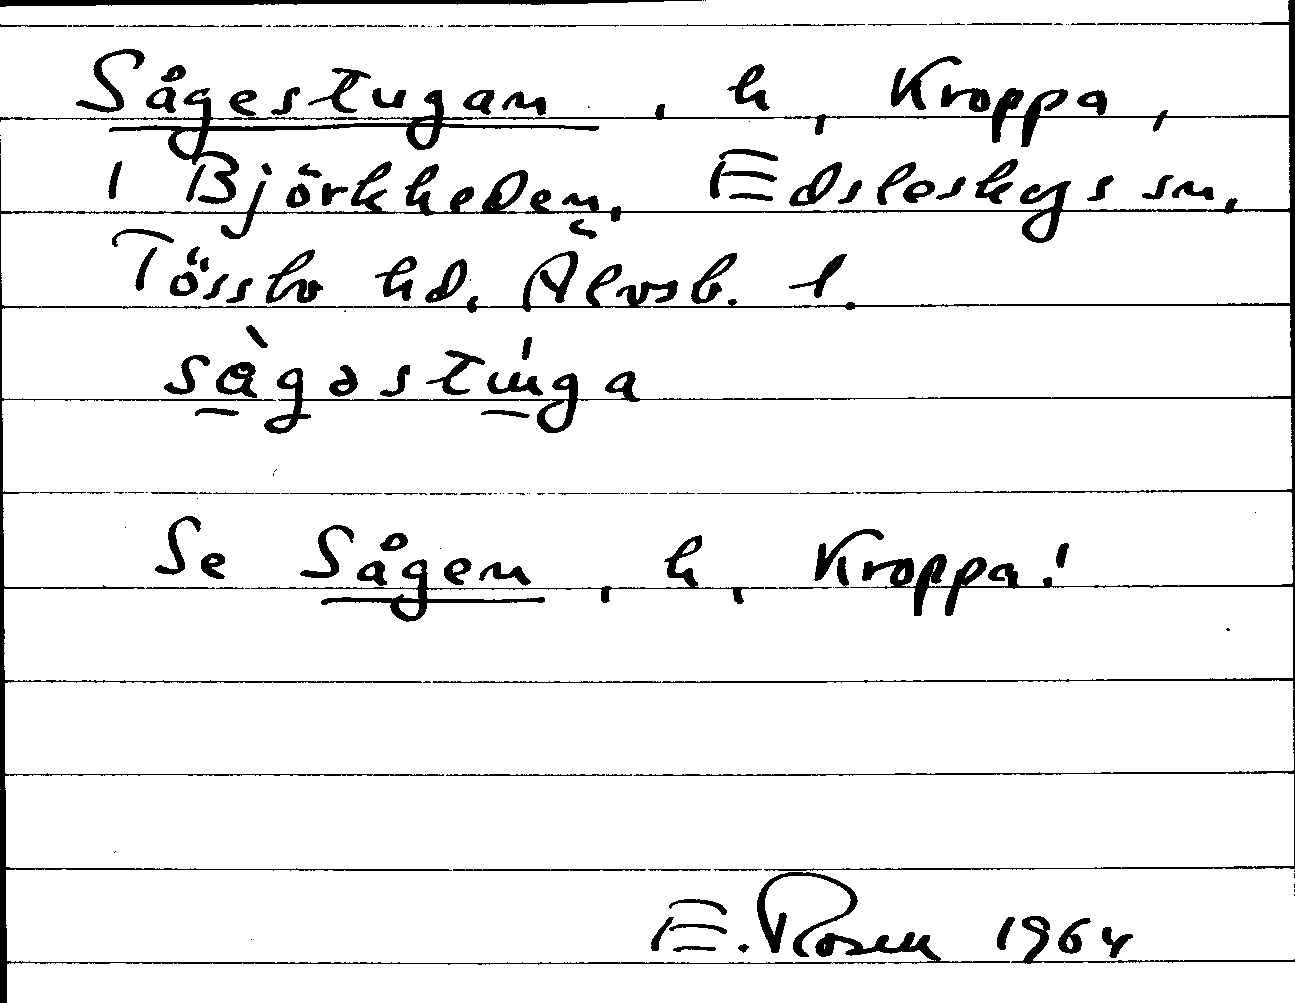 Sågestugan, h, Kroppa,
i Björkheden, Edsleskogs sn,
Tössbo hd, Älvsb. l.
sàgəstúga
Se Sågen, h, Kroppa!
E. Rosen 1964